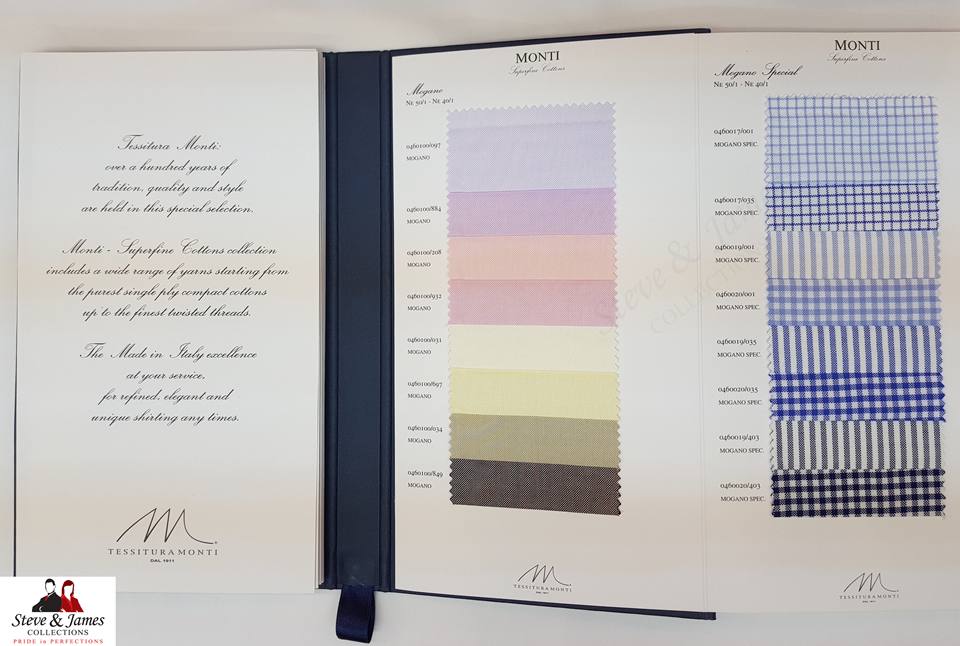 Tessitura Monti:
over a hundred years of
tradition, quality and style
are held in this special selection.
Monti - Superfine Cottons collection
includes a wide range of yarns starting from
the purest single ply compact cottons
up to the finest twisted threads.
The Made in Italy excellence
at your service,
for refined, elegant and
unique shirting any times.
TESSITURA MONTI
DAL 1911
MONTI
Superfine Cottons
Mogano
NE 50/1 - NE 40/1
0460100/097
MOGANO
0460100/884
MOGANO
0460100/208
MOGANO
0460100/932
MOGANO
0460100/031
MOGANO
0460100/697
MOGANO
0460100/034
MOGANO
0460100/849
MOGANO
TESSITURA MONTI
DAL 1911
MONTI
Superfine Cottons
Mogano Special
NE 50/1 - NE 40/1
0460017/001
MOGANO SPEC.
0460017/035
MOGANO SPEC.
0460019/001
MOGANO SPEC.
0460020/001
MOGANO SPEC.
0460019/035
MOGANO SPEC.
0460020/035
MOGANO SPEC.
0460019/403
MOGANO SPEC.
0460020/403
MOGANO SPEC.
TESSITURA MONTI
DAL 1911
Steve & James
COLLECTIONS
PRIDE in PERFECTIONS